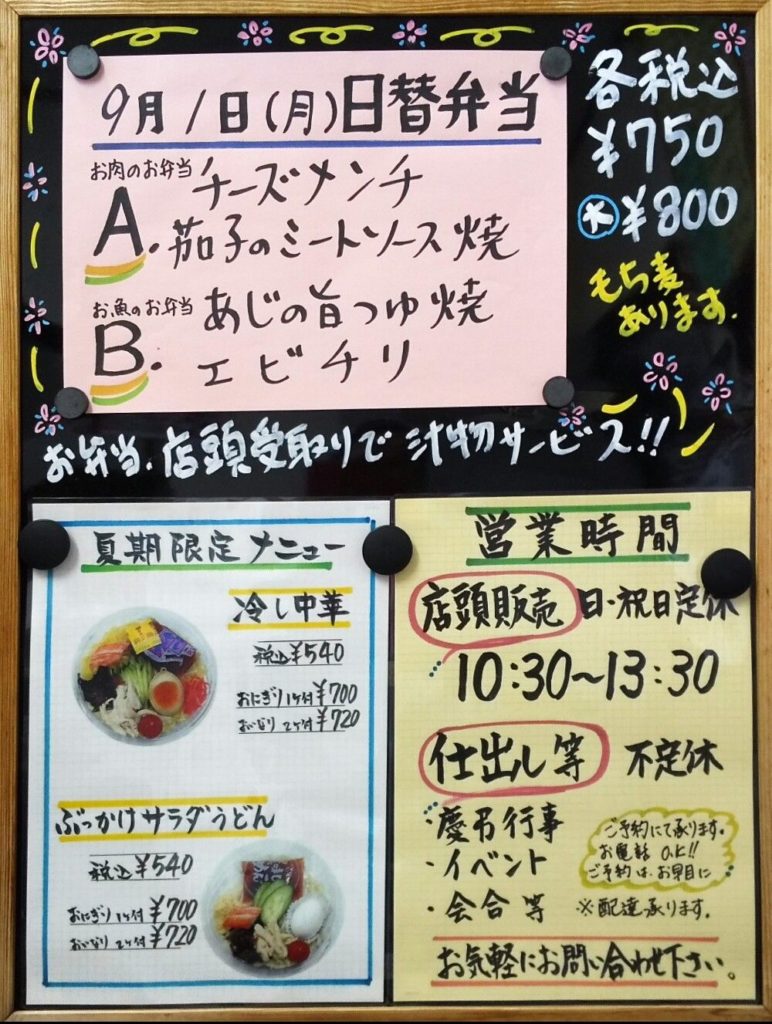 9月1日(月)日替弁当
お肉のお弁当
A. チーズメンチ
茄子のミートソース焼
お魚のお弁当
B. あじの旨つゆ焼
エビチリ
各税込
¥750
大¥800
もち麦
あります.
お弁当、店頭受取りで汁物サービス!!
夏期限定メニュー
冷し中華
税込¥540
おにぎり1ケ付¥700
おいなり2ケ付¥720
ぶっかけサラダうどん
税込¥540
おにぎり1ケ付¥700
おいなり2ケ付¥720
営業時間
店頭販売 日・祝日定休
10:30~13:30
仕出し等 不定休
・慶弔行事
・イベント
・会合等
ご予約にて承ります。
お電話OK!!
ご予約は、お早目に
※配達承ります。
お気軽にお問い合わせ下さい。